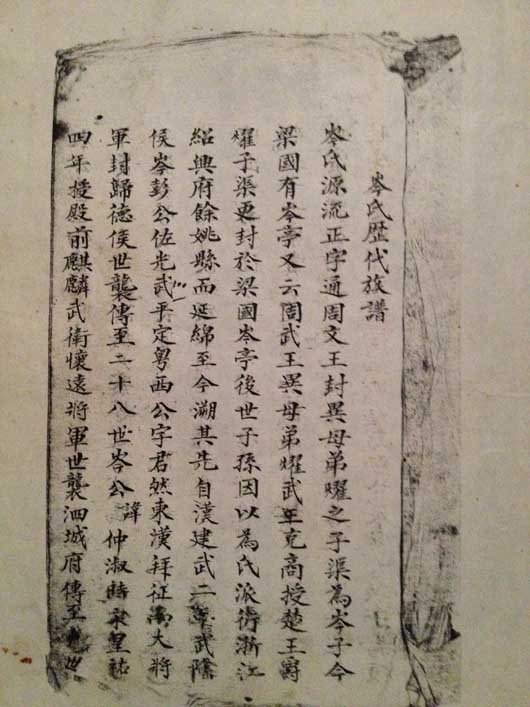 岑氏歷代族譜
岑氏源流正字通周文王封異母弟曜之子渠為岑子今
梁國有岑亭又云周武王異母弟燿武王克商授楚王爵
燿子渠更封於梁國岑亭後世子孫因以為氏派衍浙江
紹興府餘姚縣而延綿至今溯其先自漢建武二年武陰
侯岑彭公佐光武平定粵西公字君然東漢拜征蠻大將
軍封歸德侯世襲傳至二十八世岑公諱仲淑時宋皇祐
四年授殿前麒麟武衛懷遠將軍世襲泗城府傳至世